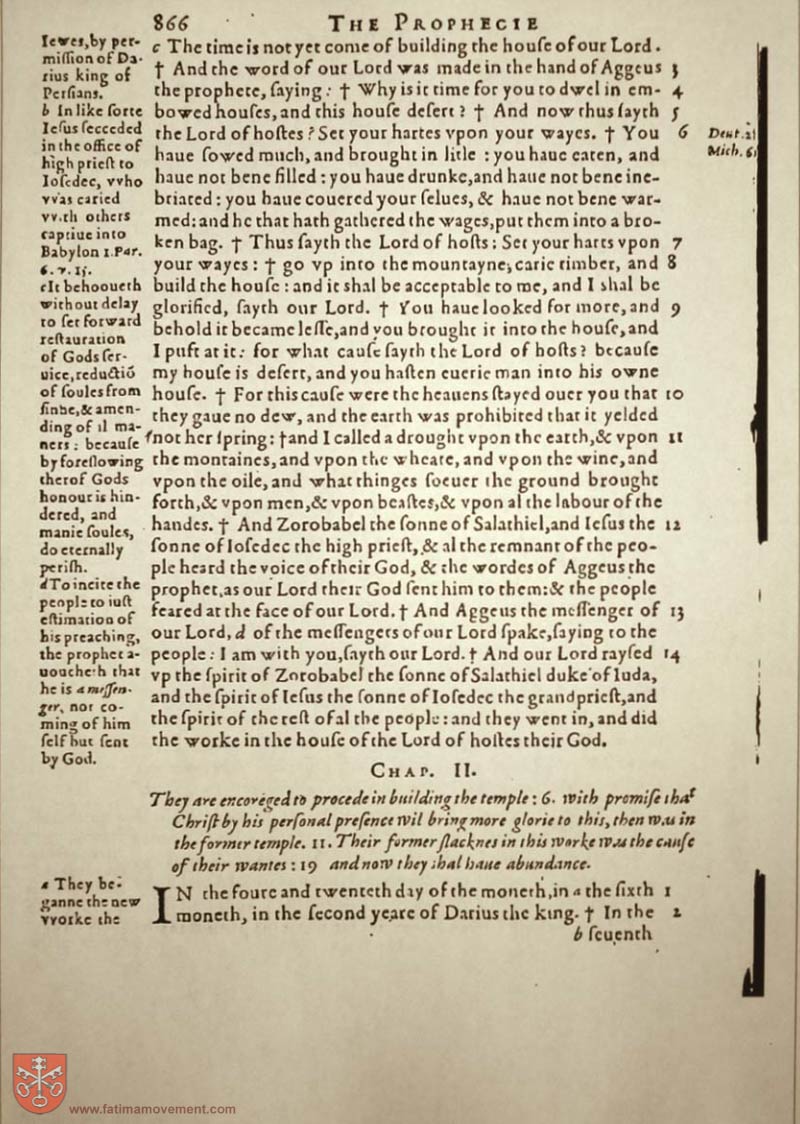 866 THE PROPHECIE
Iewes, by per-
miſſion of Da-
rius king of
Perſians.
b In like ſorte
Ieſus ſecceded
in the office of
high prieſt to
Ioſedec, vvho
vvas caried
vvith others
captiue into
Babylon 1. Par.
6. v. 15.
c It behooueth
without delay
to ſet forward
reſtauration
of Gods ſer-
uice, reductiō
of ſoules from
ſinne, & amen-
ding of il ma-
ners: becauſe
by foreſlowing
therof Gods
honour is hin-
dered, and
manie ſoules,
do eternally
periſh.
d To incite the
people to iuſt
eſtimation of
his preaching,
the prophet a-
uoucheth that
he is a meſſen-
ger, not co-
ming of him
ſelf but ſent
by God.
c The time is not yet come of building the houſe of our Lord.
† And the word of our Lord was made in the hand of Aggeus 3
the prophete, ſaying: † Why is it time for you to dwel in em- 4
bowed houſes, and this houſe deſert? † And now thus ſayth 5
the Lord of hoſtes? Set your hartes vpon your wayes. † You 6
haue ſowed much, and brought in litle: you haue eaten, and
haue not bene filled: you haue drunke, and haue not bene ine-
briated: you haue couered your ſelues, & haue not bene war-
med: and he that hath gathered the wages, put them into a bro-
ken bag. † Thus ſayth the Lord of hoſts: Set your harts vpon 7
your wayes: † go vp into the mountayne, carie timber, and 8
build the houſe: and it shal be acceptable to me, and I shal be
glorified, ſayth our Lord. † You haue looked for more, and 9
behold it became leſſe, and you brought it into the houſe, and
I puft at it: for what cauſe ſayth the Lord of hoſts? becauſe
my houſe is deſert, and you haſten euerie man into his owne
houſe. † For this cauſe were the heauens ſtayed ouer you that 10
they gaue no dew, and the earth was prohibited that it yelded
not her ſpring: † and I called a drought vpon the earth, & vpon 11
the montaines, and vpon the wheate, and vpon the wine, and
vpon the oile, and what thinges ſoeuer the ground brought
forth, & vpon men, & vpon beaſtes, & vpon al the labour of the
handes. † And Zorobabel the ſonne of Salathiel, and Ieſus the 12
ſonne of Ioſedec the high prieſt, & al the remnant of the peo-
ple heard the voice of their God, & the wordes of Aggeus the
prophet, as our Lord their God ſent him to them: & the people
feared at the face of our Lord. † And Aggeus the meſſenger of 13
our Lord, d of the meſſengers of our Lord ſpake, ſaying to the
people: I am with you, ſayth our Lord. † And our Lord rayſed 14
vp the ſpirit of Zorobabel the ſonne of Salathiel duke of Iuda,
and the ſpirit of Ieſus the ſonne of Ioſedec the grand prieſt, and
the ſpirit of the reſt of al the people: and they went in, and did
the worke in the houſe of the Lord of hoſtes their God.
Deut. 28
Mich. 6.
CHAP. II.
They are encoreged to procede in building the temple: 6. with promiſe that
Chriſt by his perſonal preſence wil bring more glorie to this, then was in
the former temple. 11. Their former ſlacknes in this worke was the cauſe
of their wantes: 19 and now they shal haue abundance.
a They be-
ganne the new
vvorke the
IN the foure and twenteth day of the moneth, in a the ſixth 1
moneth, in the ſecond yeare of Darius the king. † In the 2
b ſeuenth
www.fatimamovement.com